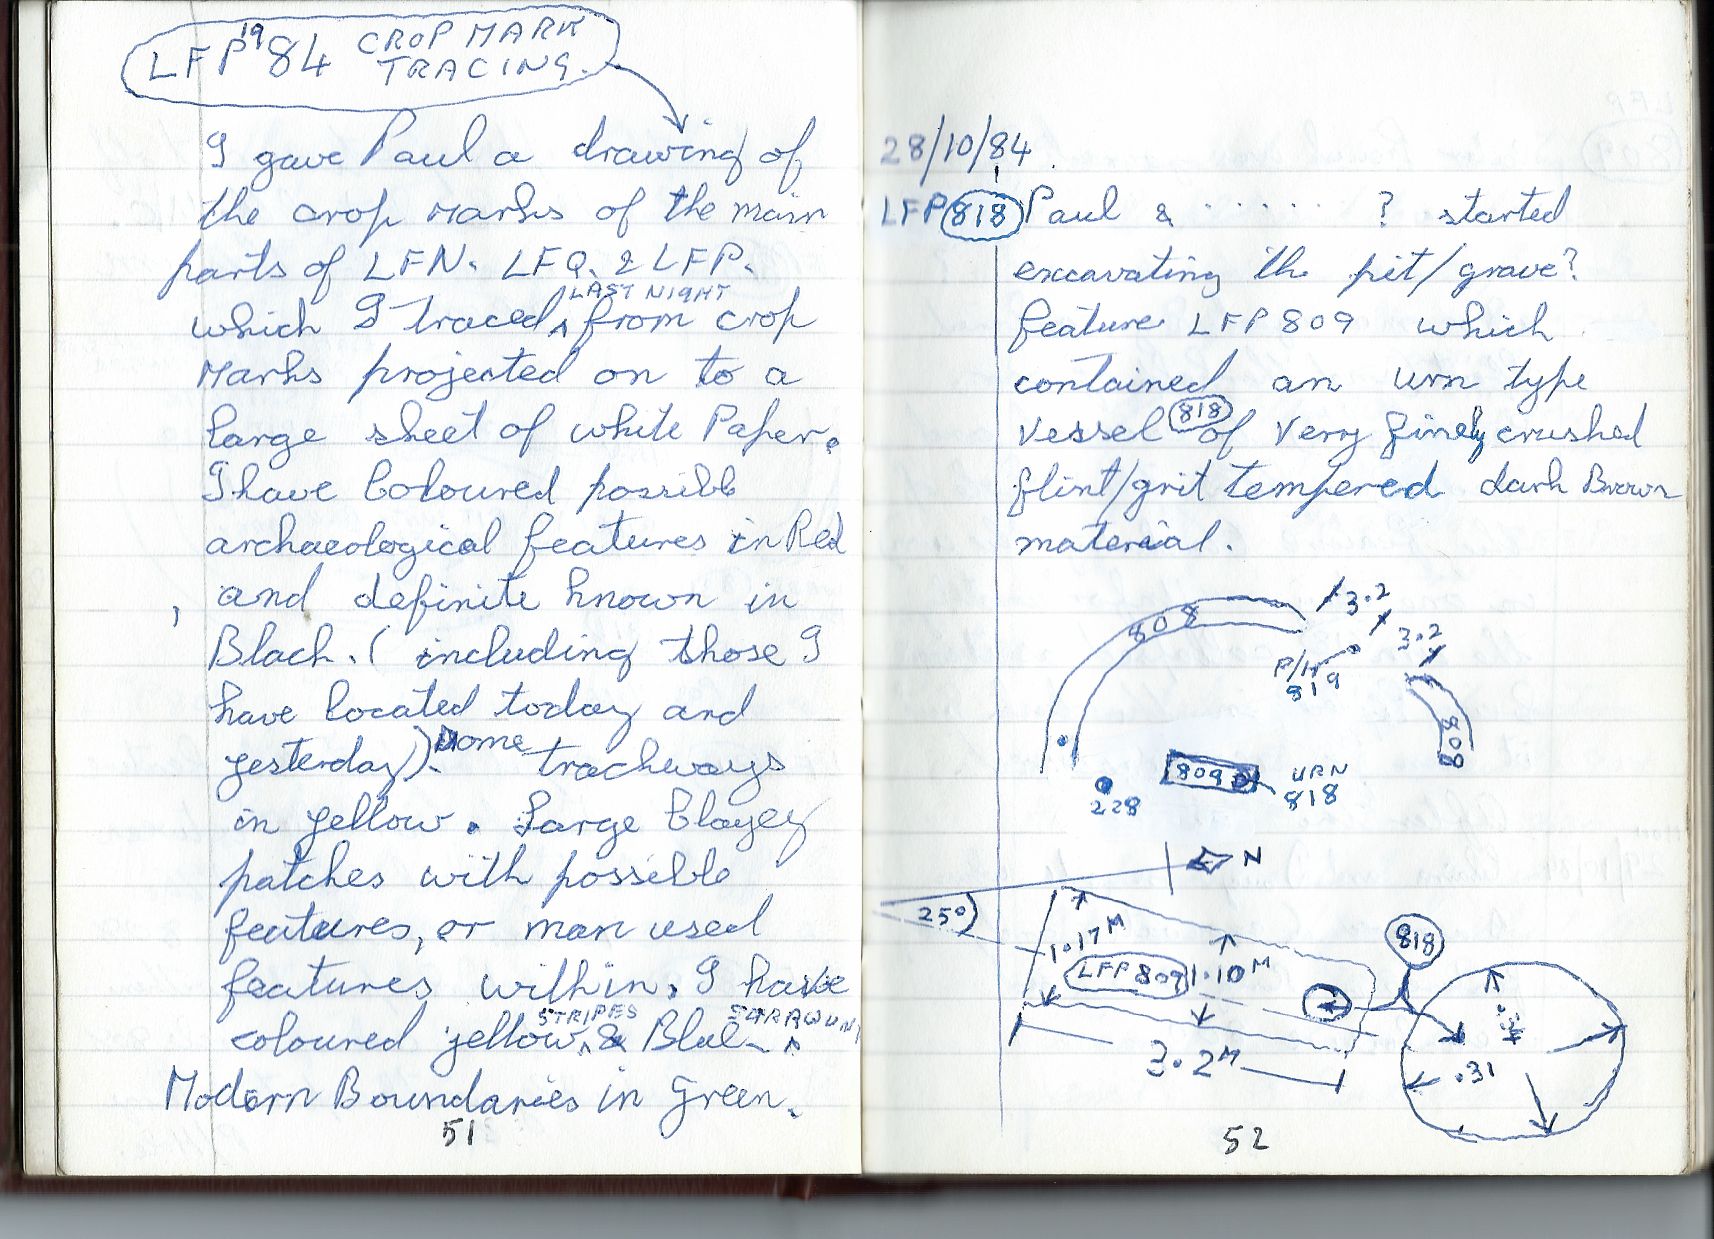 LFP 1984 CROP MARK
TRACING.
I gave Paul a drawing of
the crop marks of the main
parts of LFN. LFQ. & LFP.
LAST NIGHT
which I traced ^ from crop
Marks projected on to a
large sheet of white Paper.
I have Coloured possible
archaeological features in Red
, and definite known in
Black. ( including those I
have located today and
yesterday). Some trackways
in yellow. Large Clayey
patches with possible
features, or man used
features within, I have
STRIPES
coloured yellow ^ & Blue ^
Modern Boundaries in Green.
51
28/10/84.
LFP 818 Paul & . . . . . . ? started
excavating the pit/grave?
feature LFP 809 which
contained an urn type
vessel 818 of very finely crushed
flint/grit tempered dark Brown
material.
808
3.2
3.2
P/H
819
808
809
URN
818
228
N
25°
1.17M
LFP 809
1.10M
818
3.2M
.31
52